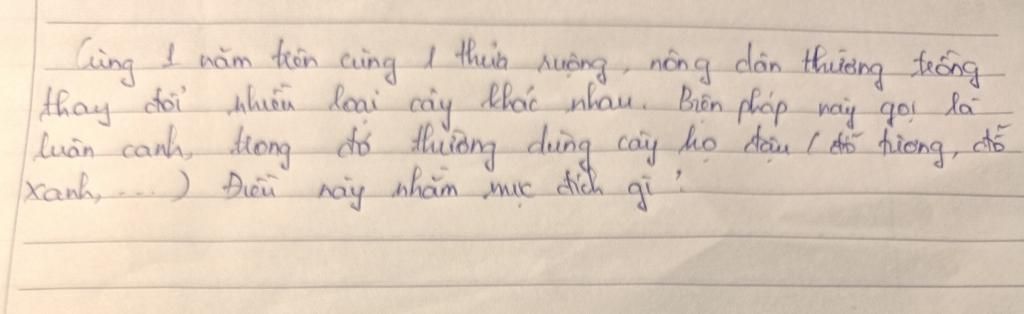 Cùng 1 năm trên cùng 1 thửa ruộng, nông dân thường trồng
thay đổi nhiều loại cây khác nhau. Biện pháp này gọi là
luân canh, trong đó thường dùng cây họ đậu (đỗ tương, đỗ
xanh, ....) Điều này nhằm mục đích gì?